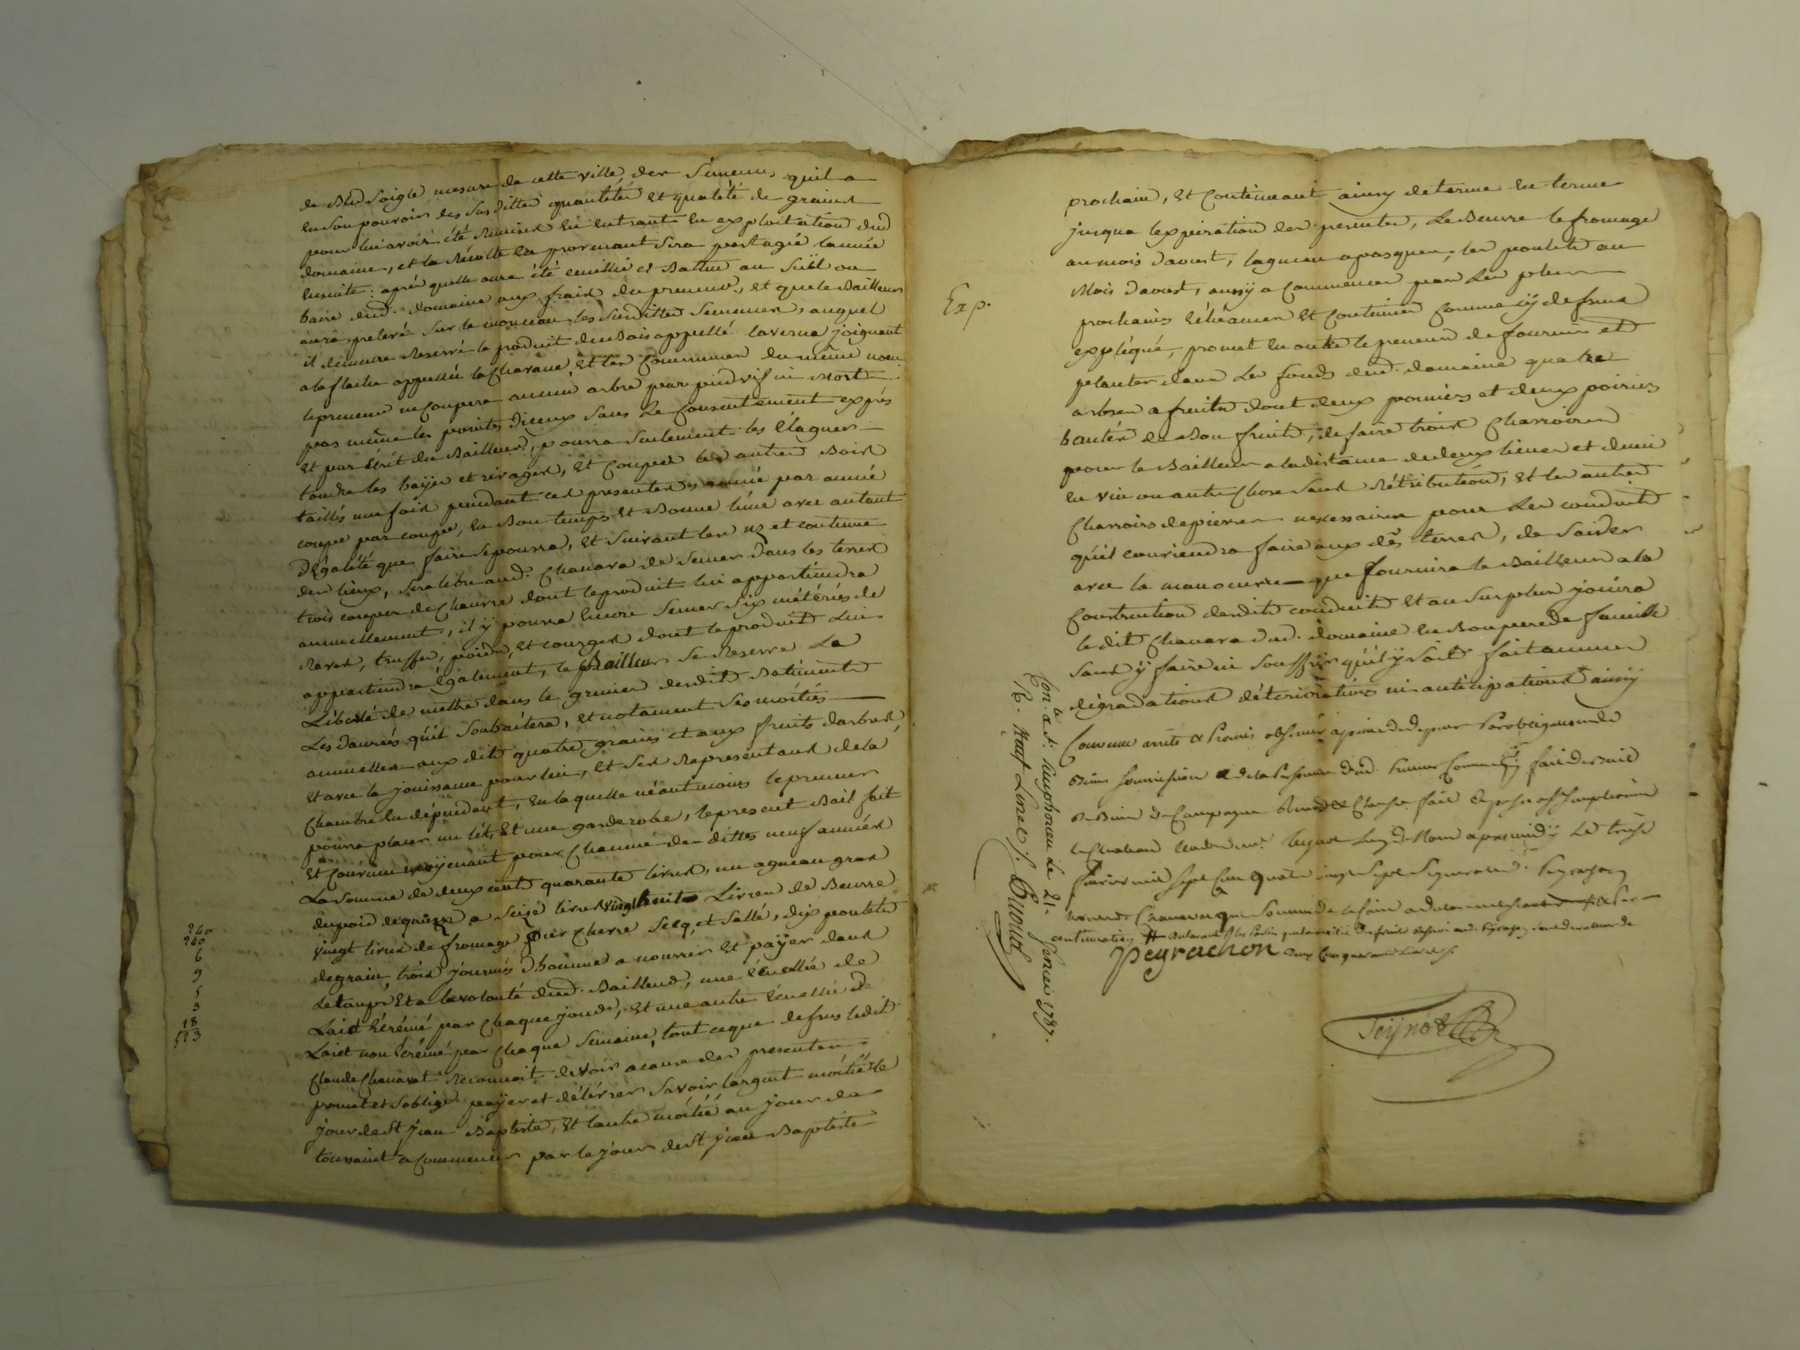 de Bled Soigle mesure de cette ville, des Semences quil a
en son pouvoir des susditte quantitté et qualité de graines
pour lui avoir été Remises en entrant en exploitation dud
domaine, et la Récolte en provenant Sera partagée lannée
Ensuite. après quelle aura été ceuillie et Battue au Suël ou
haire dud. domaine aux fraix du preneur, et que le Bailleur
aura prelevé sur le monceau les Susdittes Semences, auquel
il demeure Reservé le produit du Bois appellé laverna joignant
a la flache appellée la Charana, et les Communes du même nom
le preneur ne Coupera aucun arbre par pied vif ni Mort
pas même les pointes diceux Sans Le Consentement exprès
et par écrit du Bailleur, pourra Seulement les élaguer
tondre les hayes et rivages, et Couper les autres Bois
taillis une fois pendant ces presentes année par année
coupe par coupe, en Bon temps et Bonne lune avec autant
Dégalité que faire Se pourra, et Suivant les uz et coutume
des lieux, Sera libre aud. Chanara de Semer dans les terres
trois coupes de Chanvre dont le produit lui appartiendra
annuellement, il y pourra Encore Semer Six métérées de
Raves, truffes, poids, et courges dont le produit Lui
appartiendra également, le Bailleur Se Reserve La
Liberté de mettre dans le grenier desdits Batiments
Les danrées qu'il Souhaitera, et notament Ses moitiés
annuelles aux dits quatre grains et aux fruits darbres
et avec la jouissance pour lui, et Ses Representans de la
Chambre en dépendant, en laquelle néantmoins le preneur
pourra placer un lit, et une garderobe, le present Bail fait
et Convenu moyenant pour Chacune des dittes neuf années
La Somme de deux cent quarante livres, un agneau gras
du poid de quinze a Seize livres vingt huit Livres de Beurre
vingt livres de fromage pur Chevre Secq, et Sallé, dix poulets
de grain, trois journées dhomme a nourrir et payer dans
Le temps et a la volonté dud. Bailleur, une écuellée de
Lait Ecrémé par Chaque jeudi, et une autre écuellée de
Lait non Ecrémé par Chaque Semaine, tout ce que dessus ledit
Claude Chanarat Reconnoit devoir a cause des presentes
promet et Soblige payer et délivrer Savoir largent moitié le
jour de St jean Baptiste, et lautre moitié au jour de
toussaint a Commencer par le jour de St jean Baptiste
240
240
6
9
5
3
18
523
prochain, et Continuant ainsy de terme en terme
jusqua lexpiration des presentes, Le Beurre le fromage
au mois daoust, lagneau a pasques, les poulets au
Mois daoust, aussy a Commencer pour Les plus
prochains Echéances et Continuer Comme il y dessus
expliqué, promet en outre le preneur de fournir et
planter dans Les fonds dud. domaine quatre
arbres a fruits dont deux pomiers et deux poiriers
hantés de Bon fruit, de faire trois Charrois
pour le Bailleur a la distance de deux lieues et demi
en vin ou autre Chose Sans Rétribution, et les autres
Charrois de pierres necessaires pour Les conduits
qu'il conviendra faire aux des terres, de Saider
avec la manoeuvre que fournira le Bailleur a la
Construction desdits conduits et au Surplus jouira
le dit Chanara dud. domaine en Bon pere de famille
Sans y faire ni Souffrir qu'il y Soit fait aucunes
dégradations détériorations ni anticipations ainsy
Convenu arrêté & Promis observer a peine de depens Par obligation de
Biens Soumission & de la Personne dud. Preneur
de Biens de Campagne
mil Sept Cent quatre vingt Sept
Peyrachon
Exp.
Con.le a St. Simphorien Le 21. Janvier 1787.